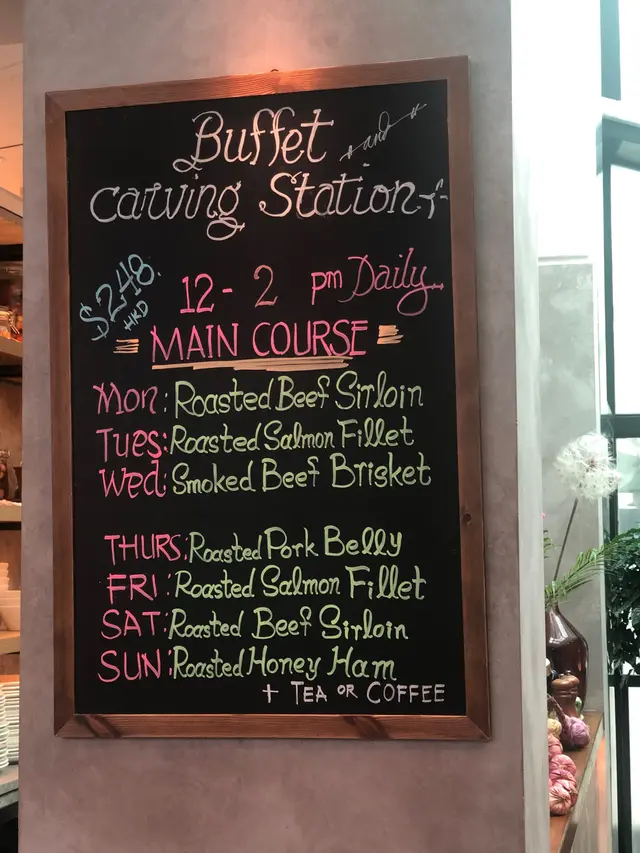 Buffet and
carving Station
$248.
HKD
12 - 2 pm Daily
MAIN COURSE
Mon: Roasted Beef Sirloin
Tues: Roasted Salmon Fillet
Wed: Smoked Beef Brisket
THURS: Roasted Pork Belly
FRI: Roasted Salmon Fillet
SAT: Roasted Beef Sirloin
SUN: Roasted Honey Ham
+ TEA OR COFFEE